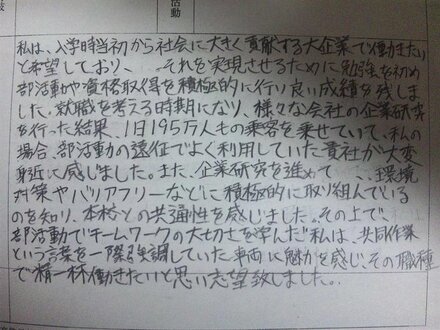 活動
私は、入学時当初から社会に大きく貢献する大企業で働きたい
と希望しており、それを実現させるために勉強を初め
部活動や資格取得を積極的に行い良い成績を残しま
した。就職を考える時期になり、様々な会社の企業研究
を行った結果、1日195万人もの乗客を乗せていて、私の
場合、部活動の遠征でよく利用していた貴社が大変
身近に感じました。また、企業研究を進めて、環境
対策やバリアフリーなどに積極的に取り組んでいる
のを知り、本校との共通性を感じました。その上で、
部活動でチームワークの大切さを学んだ私は、共同作業
という言葉を一際強調していた車両に魅力を感じその職種
で精一杯働きたいと思い志望致しました。